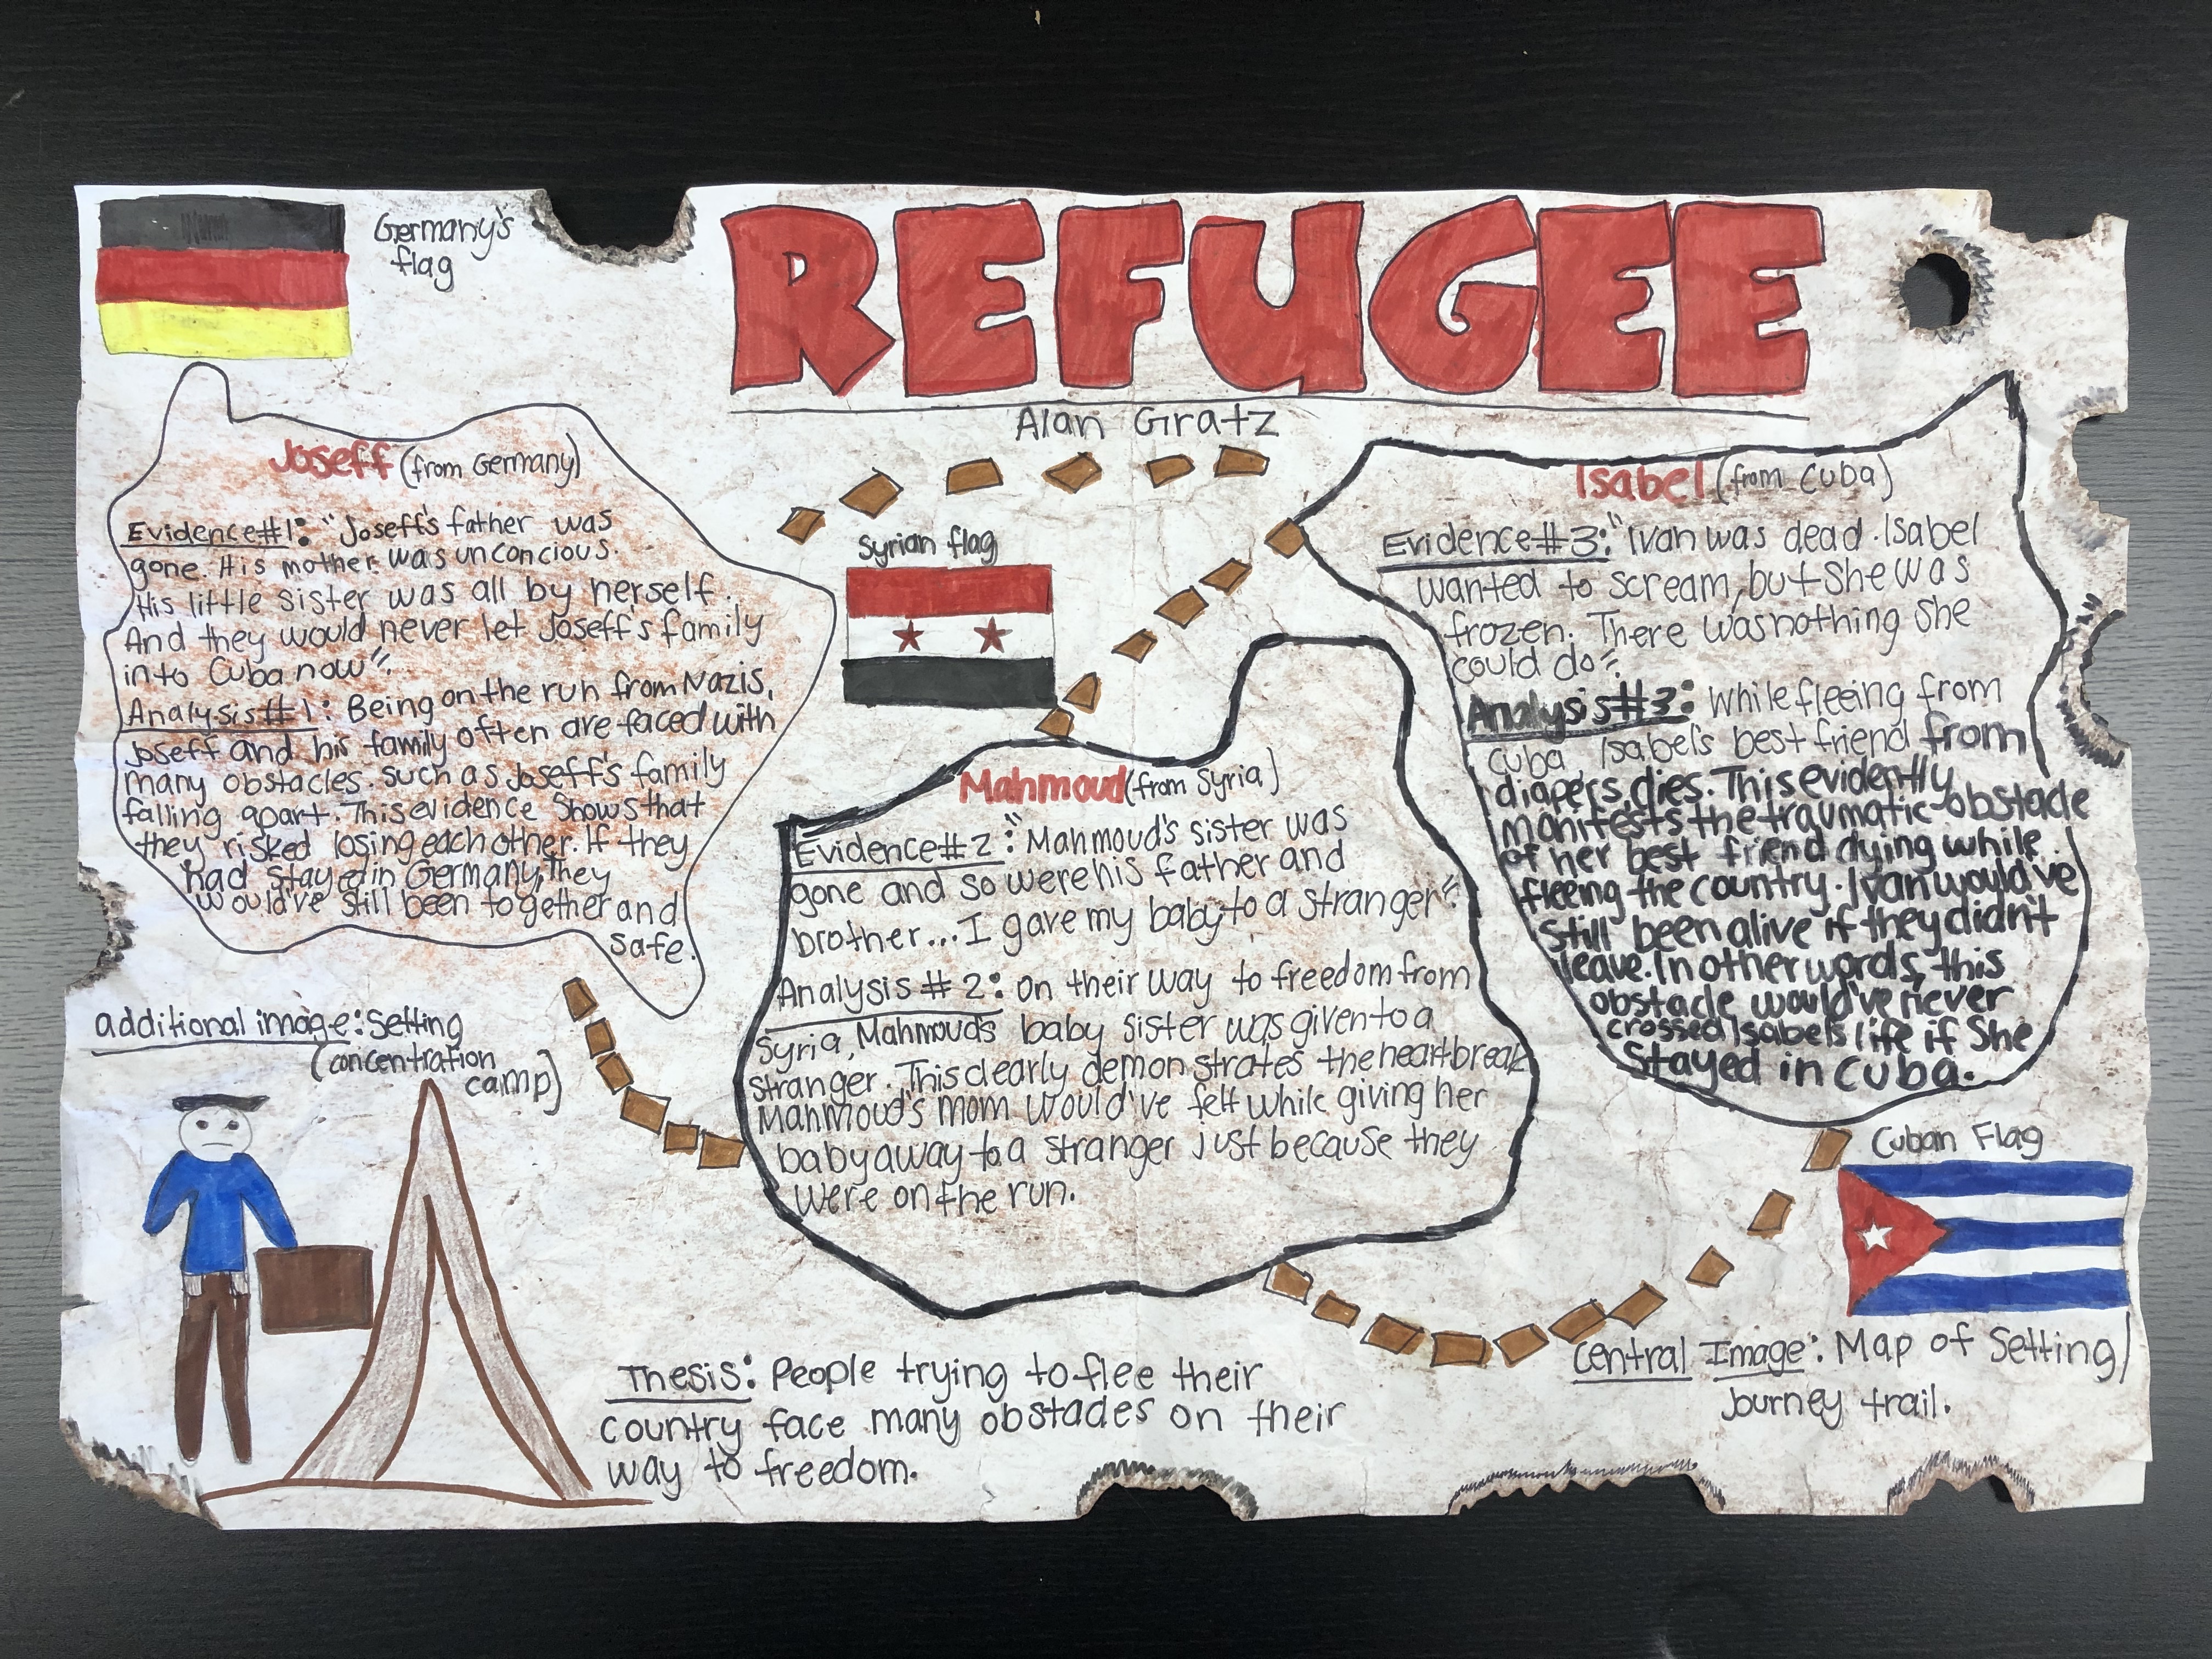 Germany's
flag
REFUGEE
Alan Gratz
Joseff (from Germany)
Evidence#1: "Joseff's father was
gone. His mother was unconcious.
His little sister was all by herself.
And they would never let Joseff's family
into Cuba now".
Analysis#1: Being on the run from Nazis,
Joseff and his family often are faced with
many obstacles. Such as Joseff's family
falling apart. This evidence shows that
they risked losing each other. If they
had stayed in Germany, They
would've still been together and
safe.
Syrian flag
Mahmoud (from Syria)
Evidence#2: "Mahmoud's sister was
gone and so were his father and
brother... I gave my baby to a stranger".
Analysis #2: on their way to freedom from
Syria, Mahmoud's baby sister was given to a
stranger. This clearly demonstrates the heartbreak
Mahmoud's mom would've felt while giving her
baby away to a stranger just because they
were on the run.
Isabel (from Cuba)
Evidence#3: "Ivan was dead. Isabel
wanted to scream, but she was
frozen. There was nothing she
could do".
Analysis#3: While fleeing from
Cuba, Isabel's best friend from
diapers, dies. This evidently
manifests the traumatic obstacle
of her best friend dying while
fleeing the country. Ivan would've
still been alive if they didn't
leave. In other words, this
obstacle would've never
crossed Isabel's life if She
Stayed in Cuba.
additional image: Setting
(concentration
camp)
Thesis: People trying to flee their
country face many obstacles on their
way to freedom.
Cuban Flag
Central Image: Map of Setting/
Journey trail.